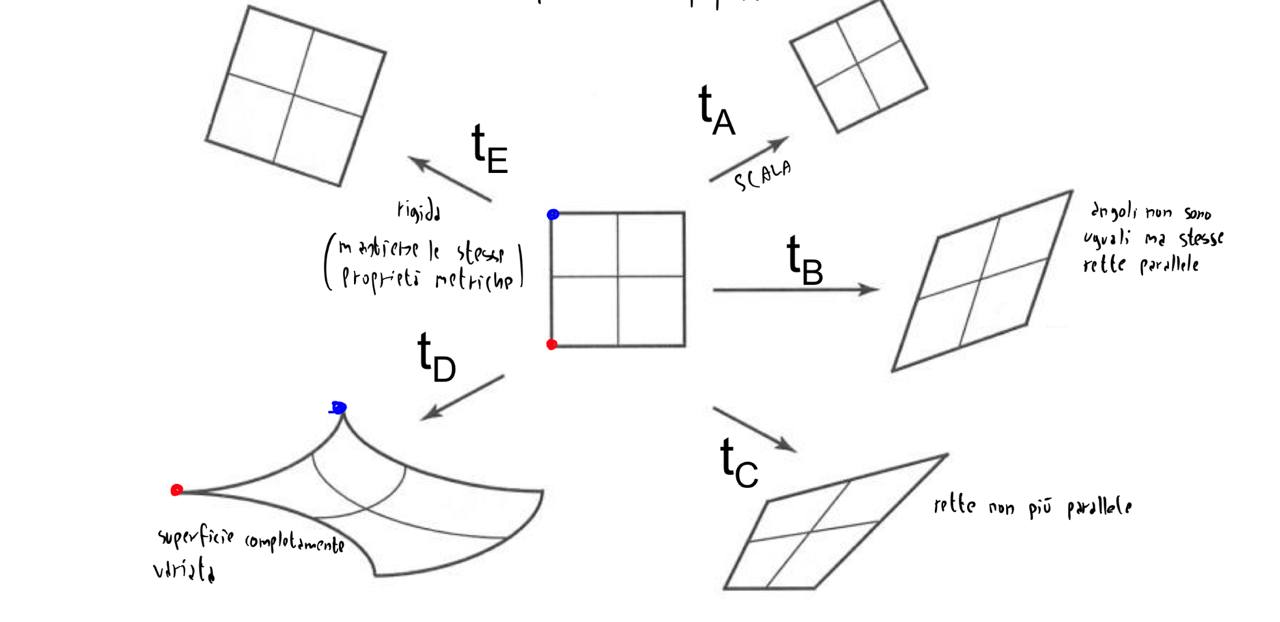 t_A
t_E
SCALA
rigida
(mantiene le stesse
proprietà metriche)
t_B
angoli non sono
uguali ma stesse
rette parallele
t_D
t_C
superficie completamente
variata
rette non più parallele